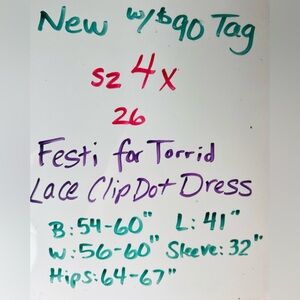 New w/$90 Tag
sz 4x
26
Festi for Torrid
Lace Clip Dot Dress
B: 54-60" L: 41"
W: 56-60" Sleeve: 32"
Hips: 64-67"